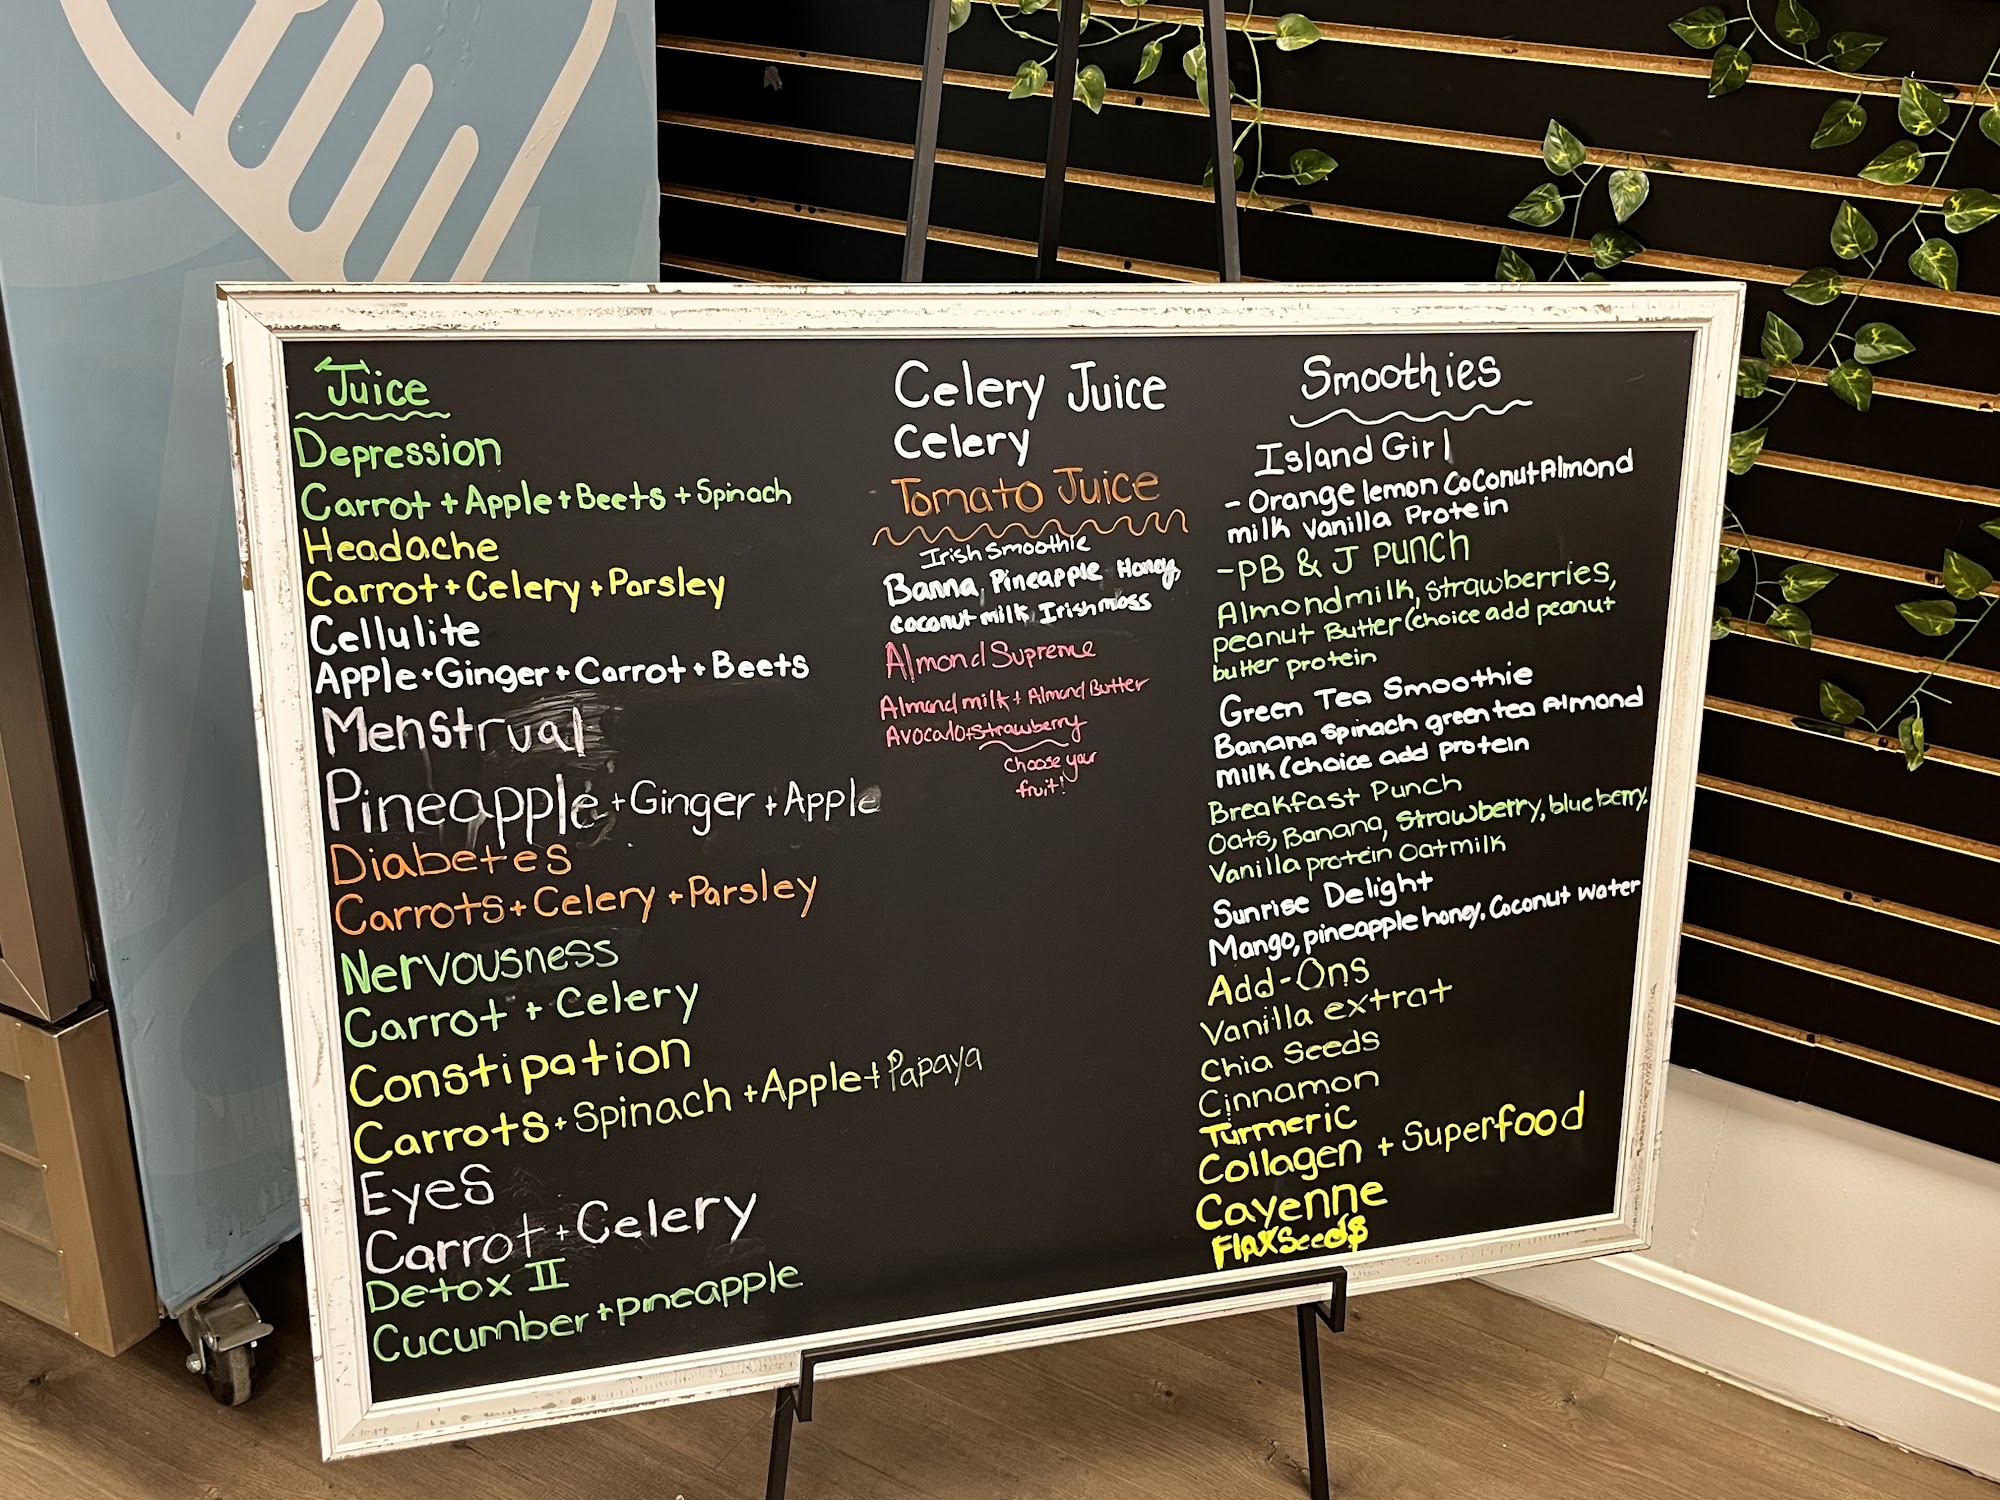 Juice
Depression
Carrot + Apple + Beets + Spinach
Headache
Carrot + Celery + Parsley
Cellulite
Apple + Ginger + Carrot + Beets
Menstrual
Pineapple + Ginger + Apple
Diabetes
Carrots + Celery + Parsley
Nervousness
Carrot + Celery
Constipation
Carrots + Spinach + Apple + Papaya
Eyes
Carrot + Celery
Detox II
Cucumber + pineapple
Celery Juice
Celery
Tomato Juice
Irish Smoothie
Banna, Pineapple Honey,
coconut milk, Irishmoss
Almond Supreme
Almond milk + Almond Butter
Avocado + strawberry
Choose your
fruit!
Smoothies
Island Girl
- Orange lemon Coconut Almond
milk vanilla Protein
- PB & J Punch
Almondmilk, strawberries,
peanut Butter (choice add peanut
butter protein
Green Tea Smoothie
Banana spinach green tea Almond
milk (choice add protein
Breakfast Punch
Oats, Banana, Strawberry, blueberry.
Vanilla protein Oatmilk
Sunrise Delight
Mango, pineapple honey. Coconut water
Add-Ons
Vanilla extrat
Chia Seeds
Cinnamon
Turmeric
Collagen + Superfood
Cayenne
FlaxSeeds